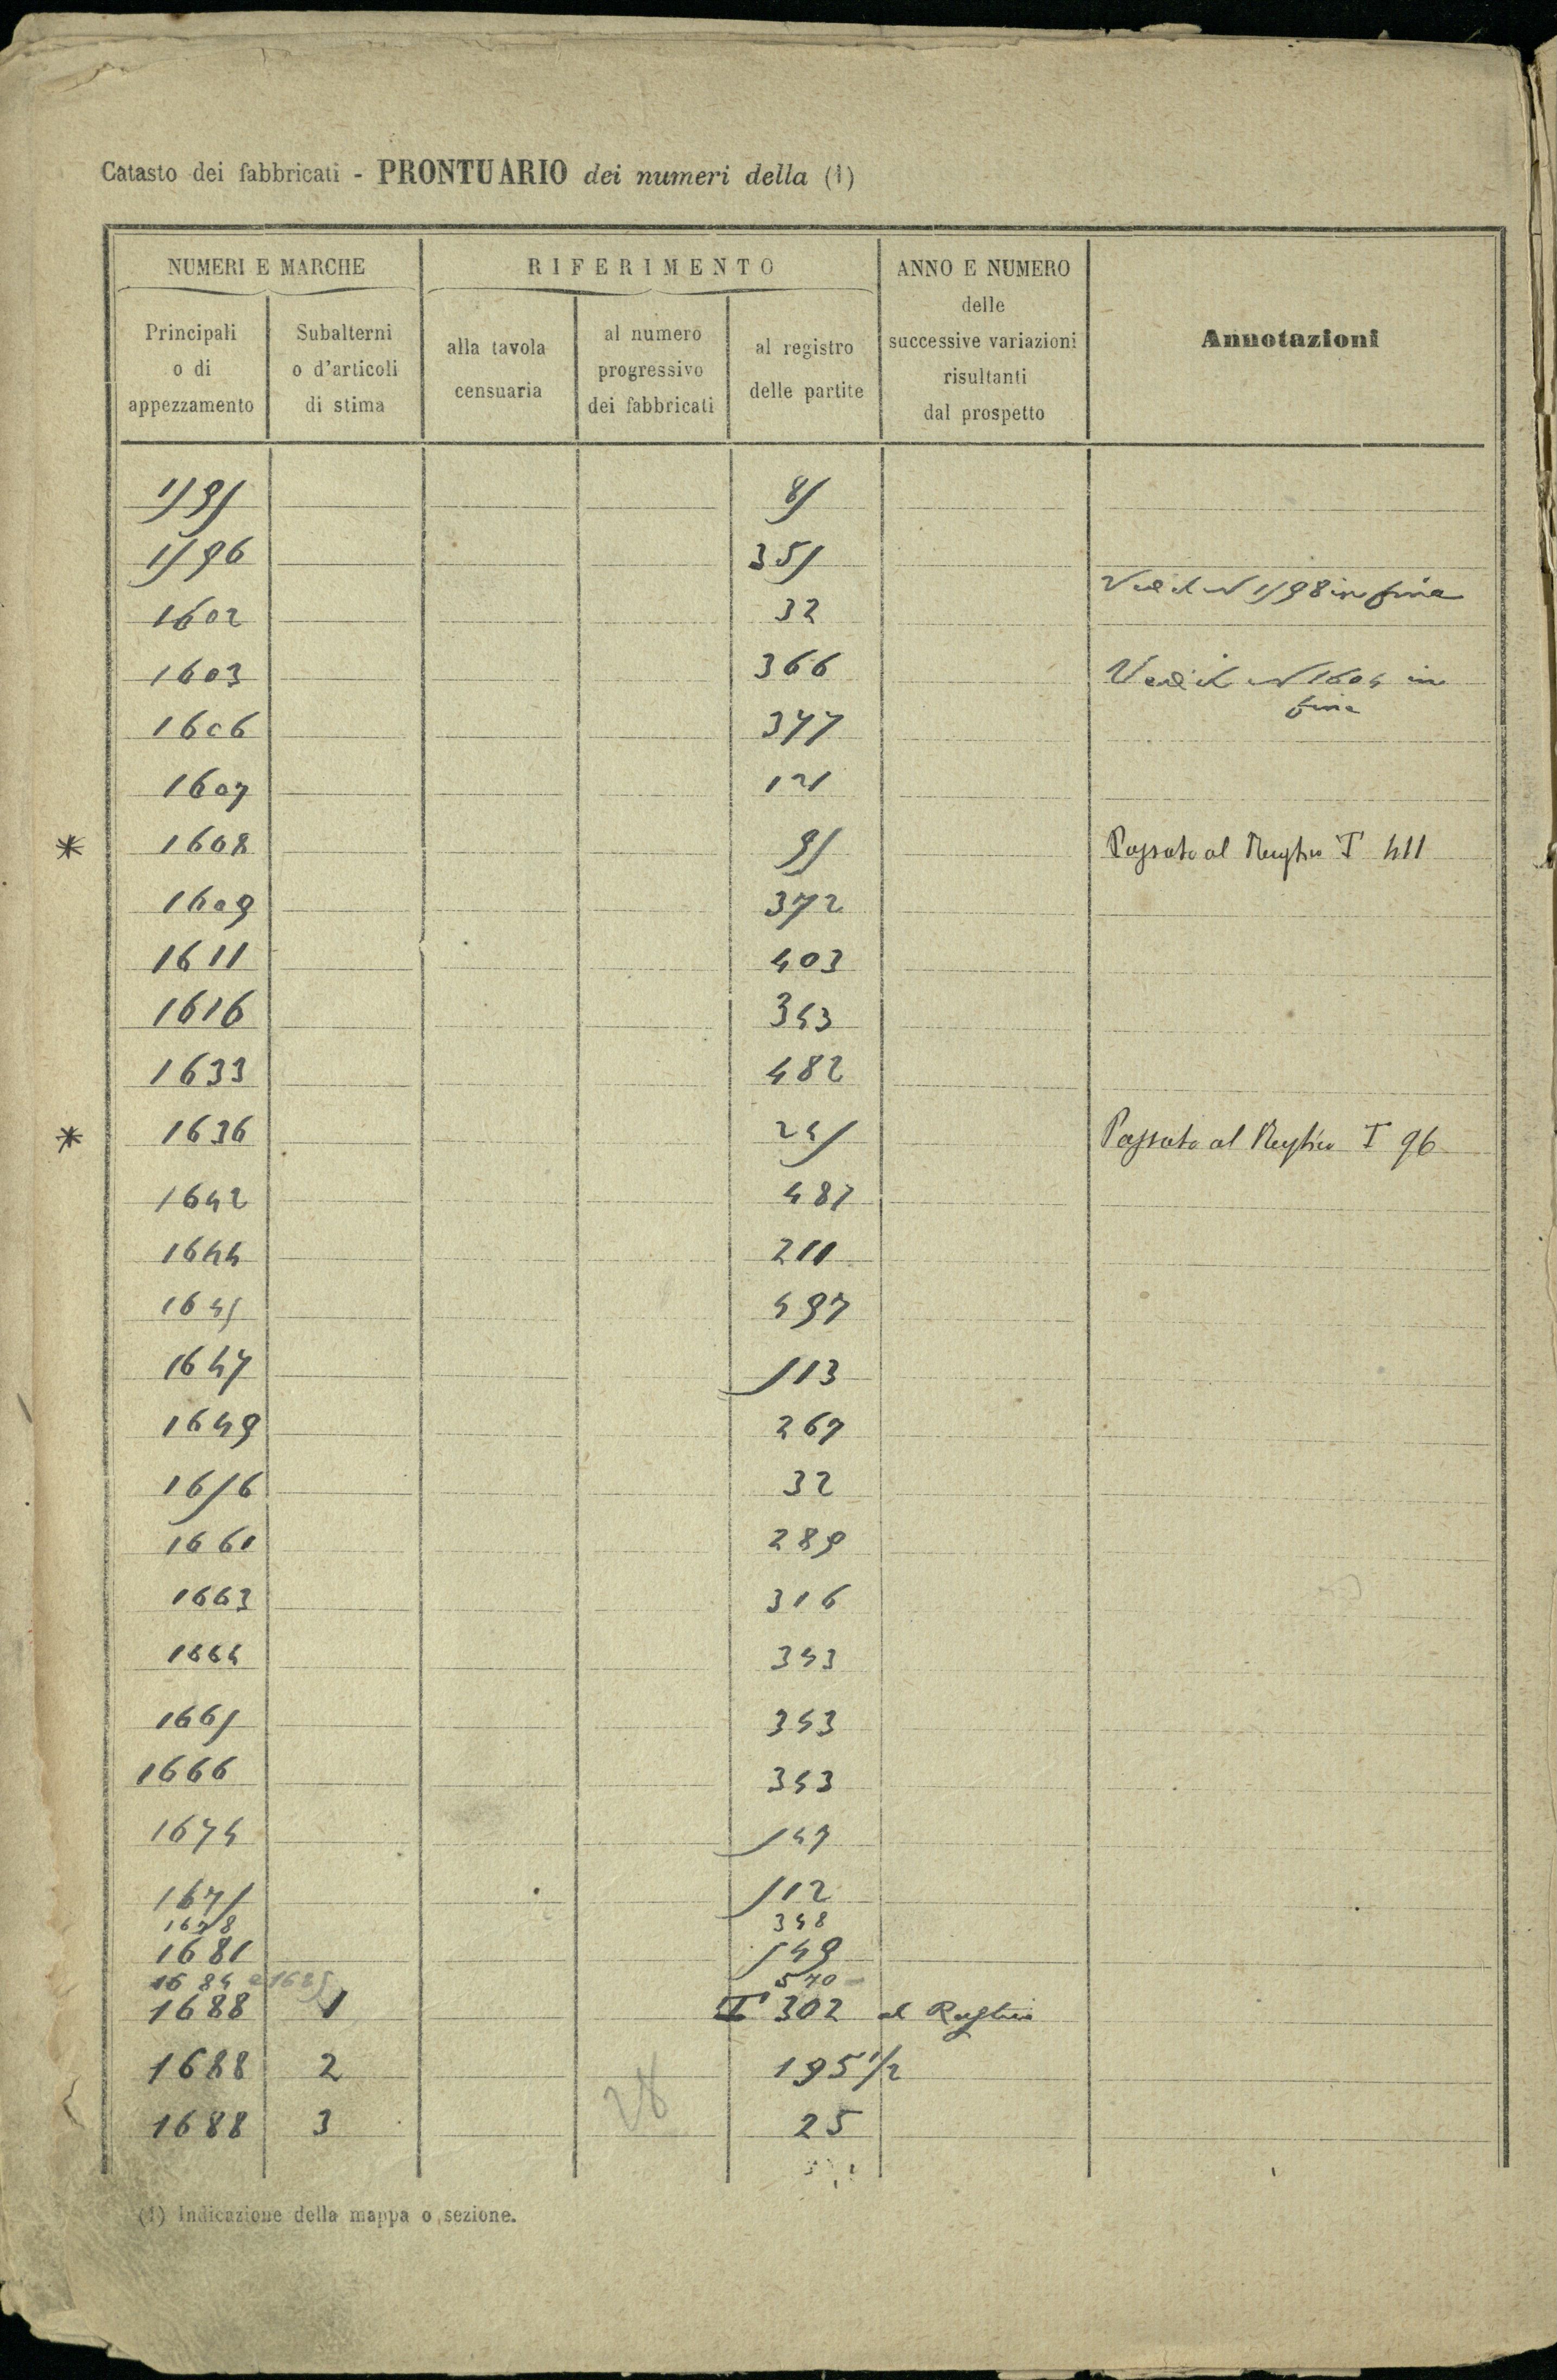 Catasto dei fabbricati - PRONTUARIO dei numeri della (1)
NUMERI E MARCHE
RIFERIMENTO
ANNO E NUMERO
delle
successive variazioni
risultanti
dal prospetto
Annotazioni
Principali
o di
appezzamento
Subalterni
o d'articoli
di stima
alla tavola
censuaria
al numero
progressivo
dei fabbricati
al registro
delle partite
1595 85
1596 355
Vedi il N 1598 in fine
1602 32
1603 366 Vedi il N 1604 in
fine
1606 377
1607 121
* 1608 95 Passato al Rustico T 411
1609 372
1611 403
1616 343
1633 482
* 1636 245 Passato al Rustico T 96
1642 487
1644 211
1645 497
1647 513
1649 267
1656 32
1660 289
1663 316
1664 343
1665 343
1666 343
1674 547
1675 512
1678 348
1681 549
1684 e 1685 570
1688 1 T 302 al Rustico
1688 2 195 1/2
28
1688 3 25
(1) Indicazione della mappa o sezione.